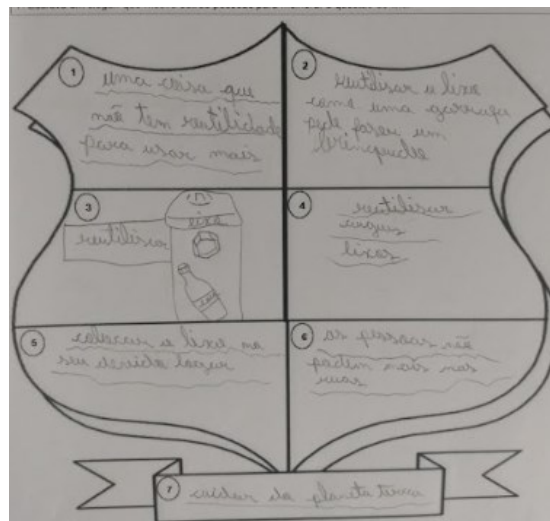 1
uma coisa que
não tem reutilidade
para usar mais
2
reutilisar o lixo
como uma garrafa
pode fazer um
brinquedo
3
lixo
reutilisar
4
reutilisar
lixos
5
colocar o lixo no
seu devido lugar
6
as pessoas não
mais nas
ruas
7
cuidar do planeta terra